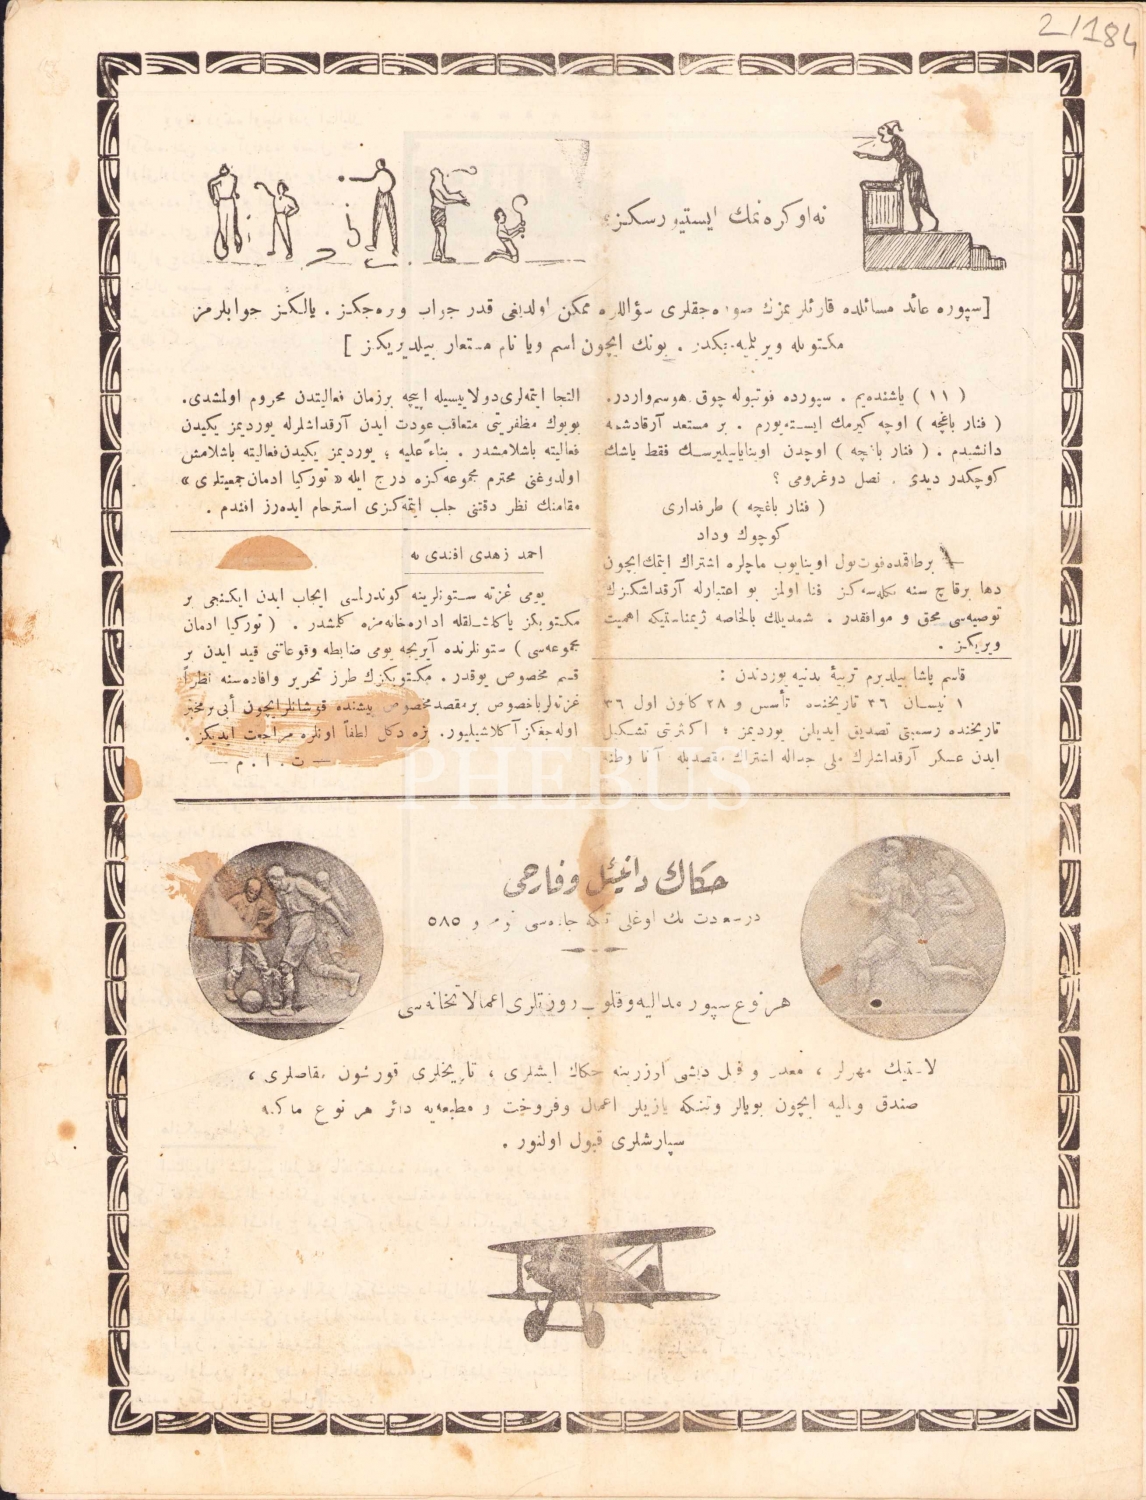 2/184
نه اوكره نمك ايستيورسكز؟
[سپوره عائد مسائلده قارئلريمزك صوره جقلرى سؤاللره ممكن اولديغى قدر جواب ويره جكز . يالكز جوابلرمز
مكتوبله ويريلميه جكدر . بونك ايچون اسم ويا نام مستعار بيلديريكز ]
( ١١ ) ياشنده يم . سپورده فوتبوله چوق هوسم واردر.
( فنار باغچه ) اوچه كيرمك ايستيورم . بر مستعد آرقداشمه
دانشدم . ( فنار باغچه ) اوچدن اوينايابيليرسك فقط ياشك
كوچكدر ديدى . نصل دوغرومى ؟
( فنار باغچه ) طرفدارى
كوچوك وداد
برطاقمده فوت بول اوينايوب ماچلره اشتراك ايتمك ايچون
دها برقاچ سنه بكله سه كز فنا اولمز بو اعتبارله آرقداشكزك
توصيه سى محق و موافقدر . شمديلك بالخاصه ژيمناستيكه اهميت
ويريكز .
قاسم پاشا ييلديرم تربيهٔ بدنيه يوردندن :
١ نيسان ٣٦ تاريخنده تأسس و ٢٨ كانون اول ٣٦
تاريخنده رسميتى تصديق ايديلن يورديمز ؛ اكثريتى تشكيل
ايدن عسكر آرقداشلرك ملى جداله اشتراك مقصديله آنا وطنه
التجا ايتمه لرى دولاييسيله اپيچه برزمان فعاليتدن محروم اولمشدى.
بويوك مظفريتى متعاقب عودت ايدن آرقداشلرله يورديمز يكيدن
فعاليته باشلامشدر . بناءً عليه ؛ يورديمز يكيدن فعاليته باشلامش
اولديغنى محترم مجموعه كزه درج ايله « توركيا ادمان جمعيتلرى »
مقامنك نظر دقتنى جلب ايتمه كزى استرحام ايده رز افندم .
احمد زهدى افندى يه
يومى غزته ستونلرينه كوندرلمسى ايجاب ايدن ايكنجى بر
مكتوبكز ياكلشلقله اداره خانه مزه كلمشدر . ( توركيا ادمان
مجموعه سى ) ستونلرنده آيريجه يومى ضابطه وقوعاتنى قيد ايدن بر
قسم مخصوص يوقدر . مكتوبكزك طرز تحرير وافاده سنه نظراً
غزته لر باخصوص بر مقصد مخصوص پيشنده قوشانلر ايچون أيى بر مخبر
اوله جغكز آكلاشيليور. بزه دكل لطفاً اونلره مراجعت ايديكز .
— ت . ا . م —
PHEBUS
حكاك دانيئل وفارجى
درسعادت بك اوغلى تكه جاده سى نومرو ٥٨٥
هر نوع سپور مداليه و قلوب روزتلرى اعمالاتخانه سى
لاستيك مهرلر ، معدن و فيل ديشى اوزرينه حكاك ايشلرى ، تاريخلرى قورشون مقاصلرى ،
صندق وباليه ايچون بويالر وتنكه يازيلر اعمال وفروخت و مطبعه يه دائر هر نوع ماكنه
سپارشلرى قبول اولنور .